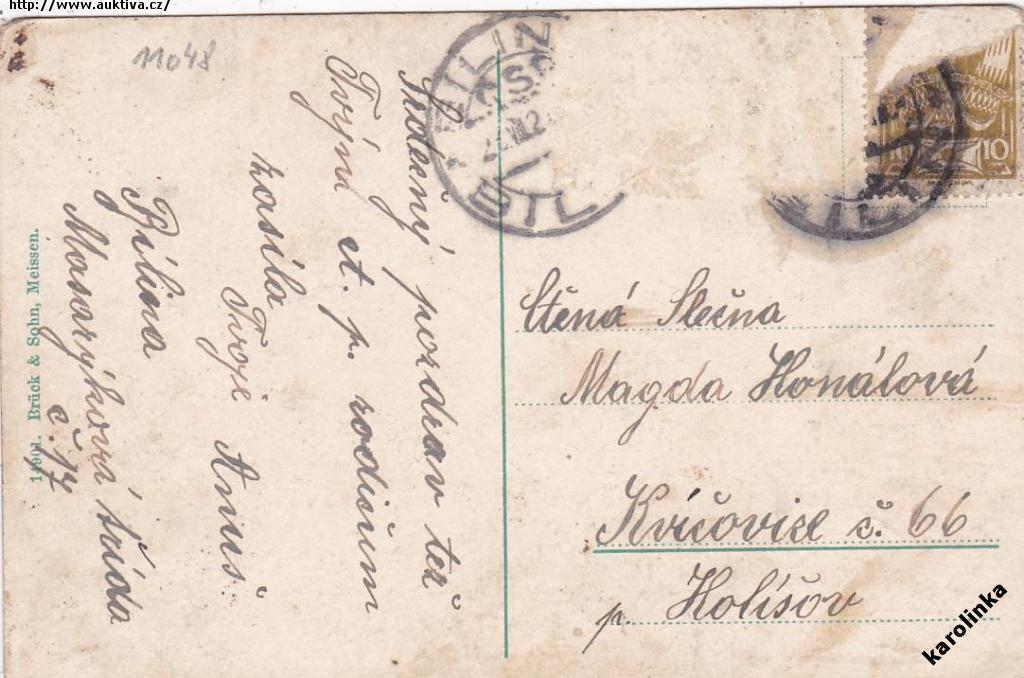 http://www.auktiva.cz/
11048
Srdečný pozdrav též
Tvým ct. p. rodičům
zasílá
Tvoje Anuš.
Bílina
Masarykova třída
č. 17
14901. Brück & Sohn, Meissen.
BÍLIN
ČSR
VIII 2
BIL
10
Ctěná Slečna
Magda Honálová
Kvíčovice č. 66
p. Holíšov
karolinka